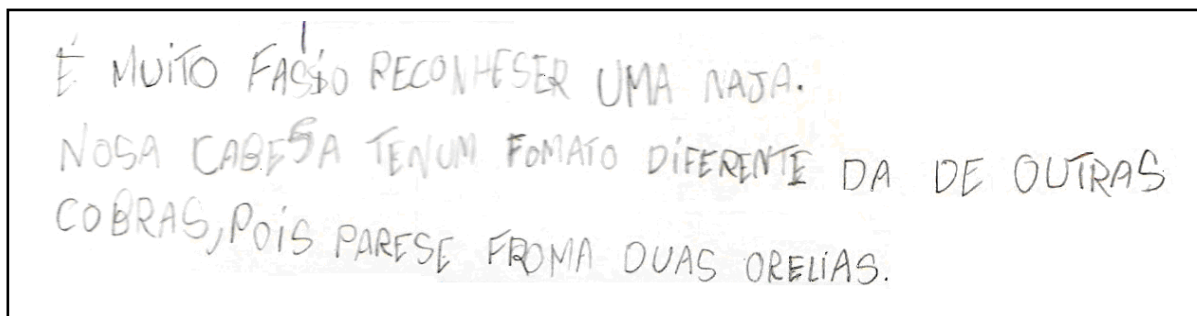 É MUITO FASIO RECONHESER UMA NAJA.
NOSA CABESA TENUM FOMATO DIFERENTE DA DE OUTRAS
COBRAS, POIS PARESE FROMA DUAS ORELIAS.